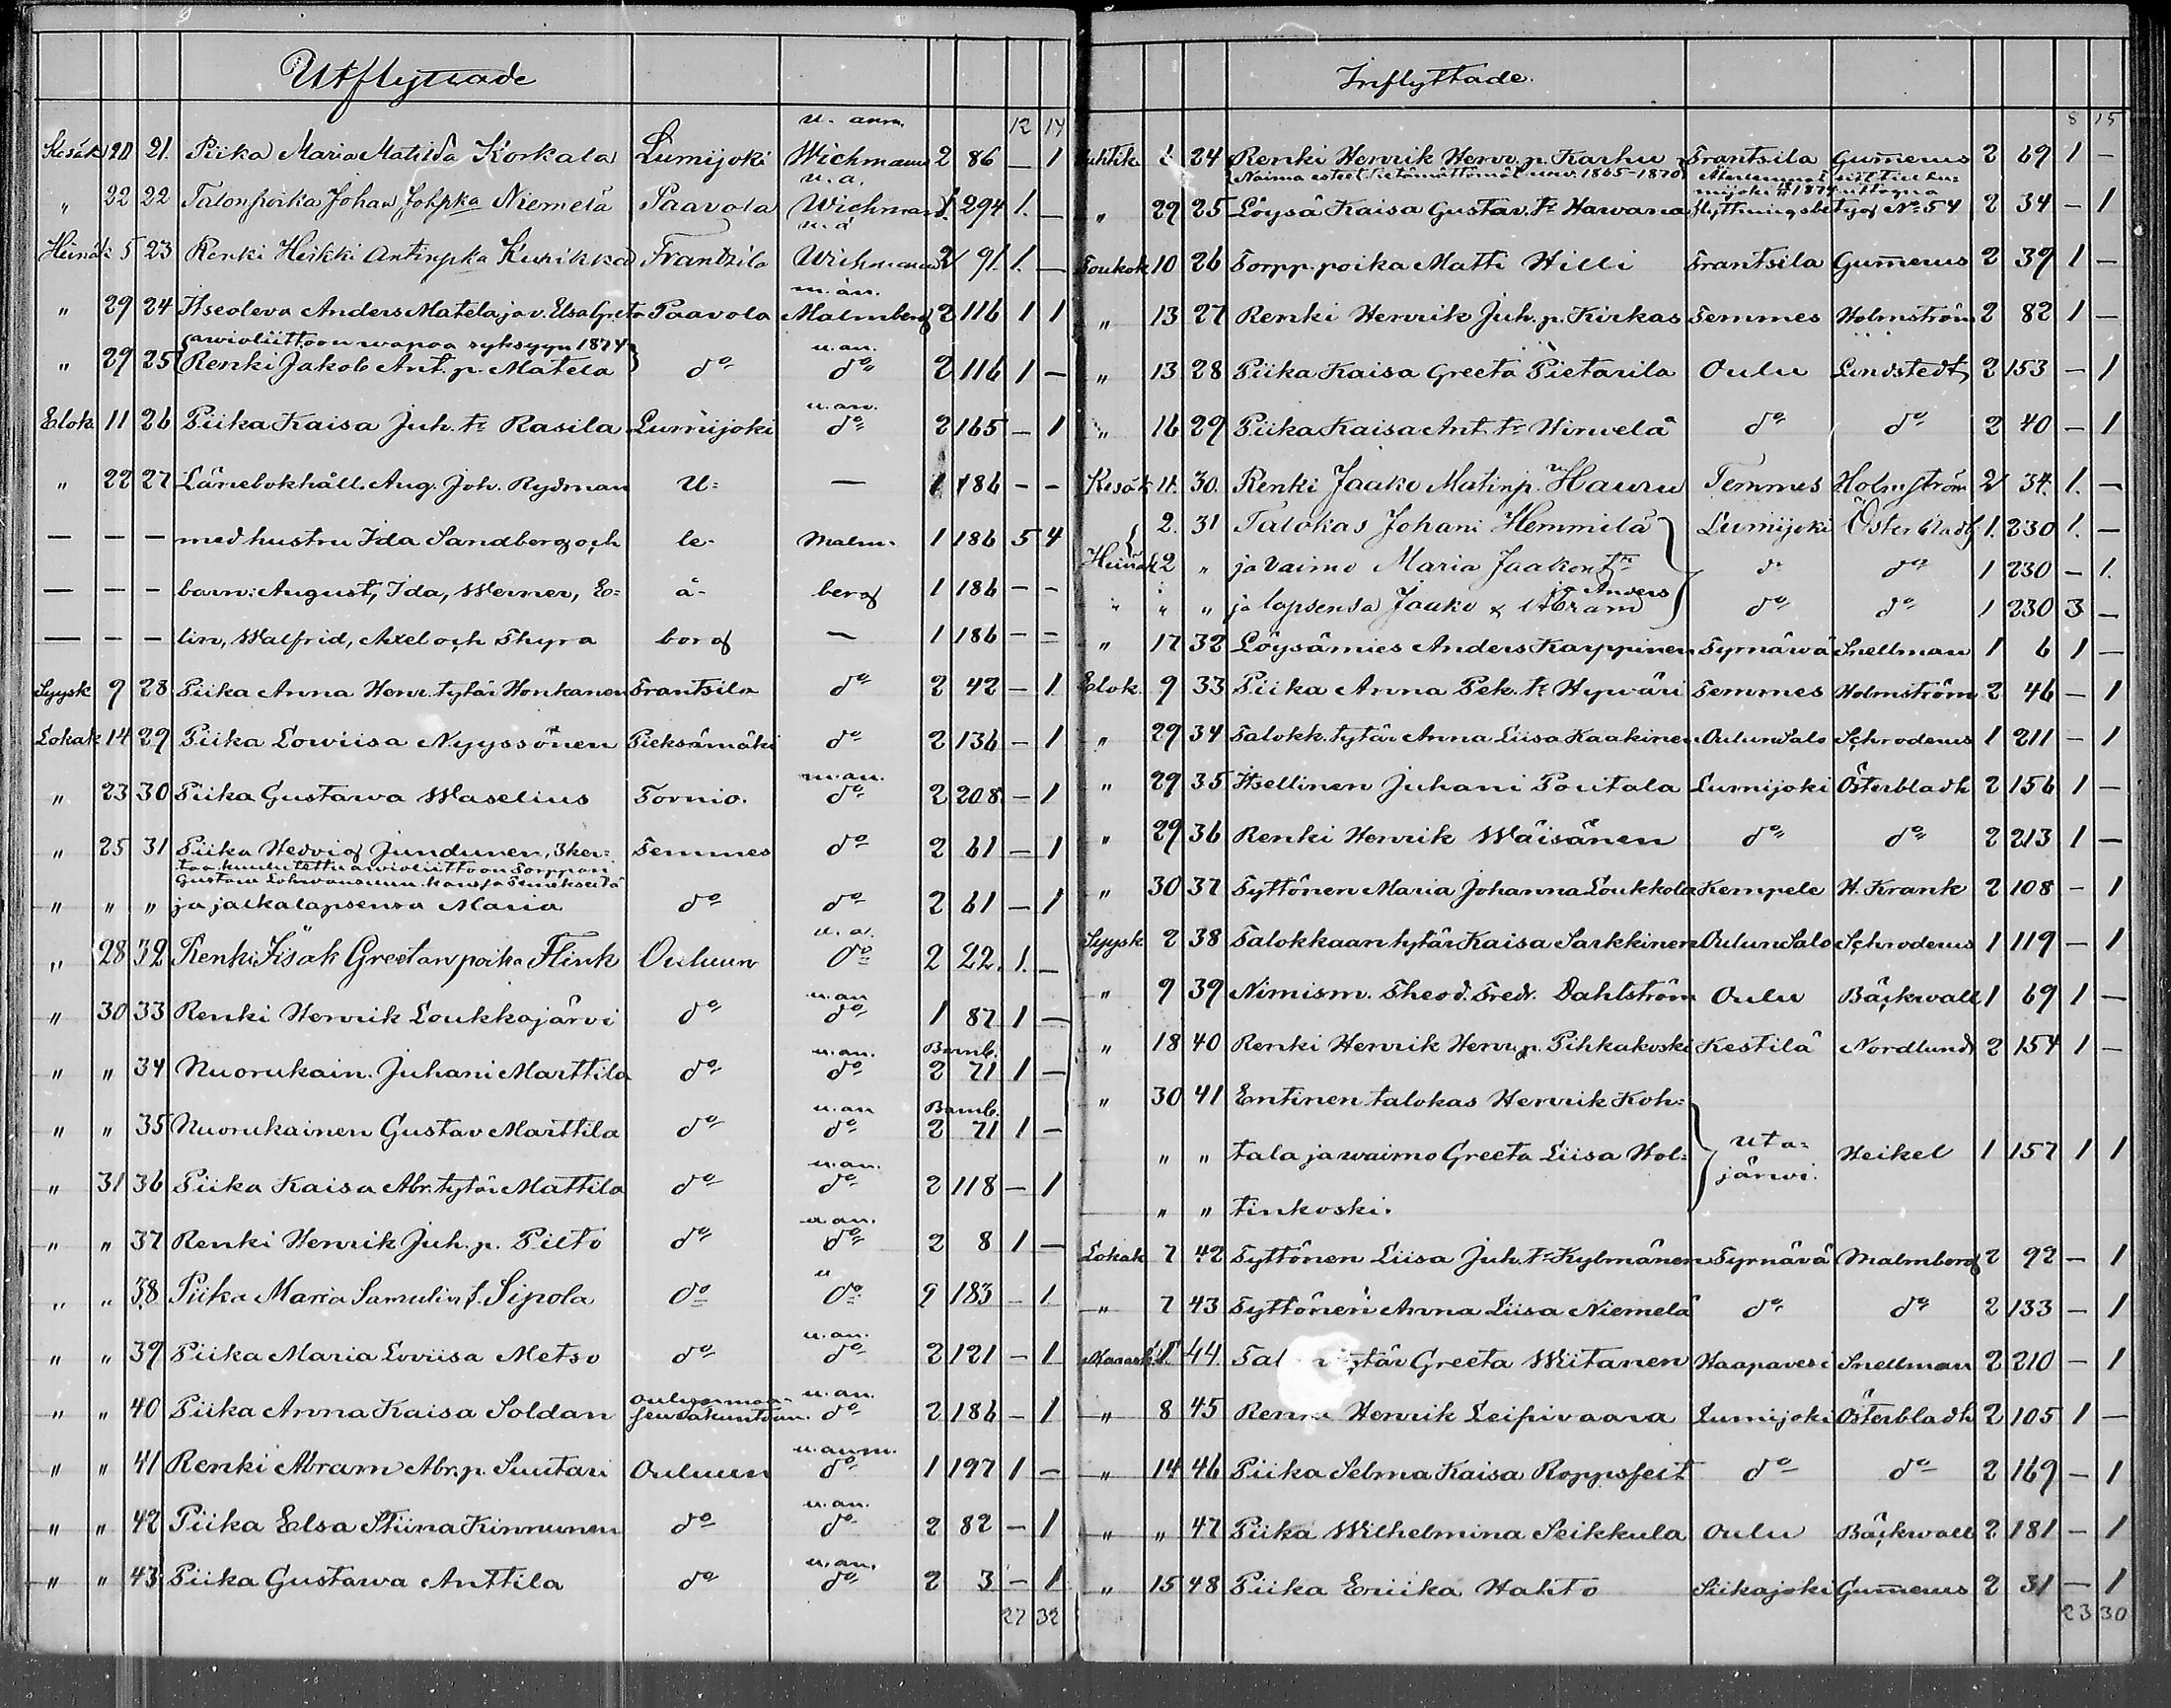 Utflyttade
u. anm. 12 14
Kesäk 20 21. Piika Maria Matilda Korkala Lumijoki Wichmann 2 86 — 1
u. a.
" 22 22 Talonpoika Johan Joh.pka Niemelä Paavola Wichman 1. 294 1. —
u. a
Heinäk 5 23 Renki Heikki Antinpka Kurikka Frantsila Wichmann 2 91. 1. —
m. än.
" 29 24 Itseoleva Anders Matela ja v. Elsa Greta Paavola Malmberg 2 116 1 1
awioliittoon wapaa syksyyn 1874 u. an.
" 29 25 Renki Jakob Ant. p. Matela do do 2 116 1 —
u. an.
Elok. 11 26 Piika Kaisa Juh. tr Rasila Lumijoki do 2 165 — 1
" 22 27 Länebokhåll. Aug. Joh. Rydman U= — 1 186 - -
— — — med hustru Ida Sandberg och le- Malm- 1 186 5 4
— — — barn: August, Ida, Werner, E= å- berg 1 186 - -
— — — lin, Walfrid, Axel och Thyra borg — 1 186 - =
Syysk 9 28 Piika Anna Henr. tytär Honkanen Frantsila do 2 42 — 1
Lokak 14 29 Piika Lowiisa Nyyssönen Pieksämäki do 2 136 — 1
m. an.
" 23 30 Piika Gustawa Waselius Tornio. do 2 208 — 1
" 25 31 Piika Hedvig Jundunen, 3 ker= Temmes do 2 61 — 1
taa kuulutettu awioliittoon Torppari
Gustaw
" " " ja jalkalapsensa Maria do do 2 61 — 1
u. a.
" 28 32 Renki Iisak Greetanpoika Flink Ouluun do 2 22. 1. —
u. an
" 30 33 Renki Henrik Loukkojärvi do do 1 87 1 —
u. an. Barnb.
" " 34 Nuorukain. Juhani Marttila do do 2 71 1 —
u. an Barnb.
" " 35 Nuorukainen Gustav Marttila do do 2 71 1 —
u. an.
" 31 36 Piika Kaisa Abr. tytär Mattila do do 2 118 — 1
u. an.
" " 37 Renki Henrik Juh. p. Pilto do do 2 8 1 —
u
" " 38 Piika Maria Samulin t. Sipola do do 2 183 — 1
u. an.
" " 39 Piika Maria Loviisa Metso do do 2 121 — 1
Oulunmaa- u. an.
" " 40 Piika Anna Kaisa Soldan seurakuntaan. do 2 186 — 1
u. anm.
" " 41 Renki Abram Abr. p. Suutari Ouluun do 1 197 1 —
u. an.
" " 42 Piika Elsa Stiina Kinnunen do do 2 82 — 1
u. an.
" " 43 Piika Gustawa Anttila do do 2 3 — 1
27 32
Inflyttade.
8 15
Huhtik. 24 Renki Henrik Henr. p. Karhu Frantsila Gumerus 2 69 1 —
Naima esteet tietämättömät vuos. 1865-1870
" 29 25 Löysä Kaisa Gustav. tr Hawana flyttningsbetyg No 54 2 34 — 1
Toukok 10 26 Torpp. poika Matti Hilli Frantsila Gumerus 2 39 1 —
" 13 27 Renki Henrik Juh. p. Kirkas Temmes Holmström 2 82 1 —
" 13 28 Piika Kaisa Greeta Pietarila Oulu Lindstedt 2 153 — 1
" 16 29 Piika Kaisa Ant. tr Hirwelä do do 2 40 — 1
Kesäk 11. 30. Renki Jaako Matinp. Hauru Temmes Holmström 2 34. 1. —
2. 31 Talokas Johani Hemmilä Lumijoki Österbladh 1. 230 1. —
Heinäk 2 " ja Vaimo Maria Jaakon tr do do 1 230 — 1.
ja Anders
" " " ja lapsensa Jaako & Abram do do 1 230 3 —
" 17 32 Löysämies Anders Karppinen Tyrnäwä Snellman 1 6 1 —
Elok. 9 33 Piika Anna Pek. tr Hywäri Temmes Holmström 2 46 — 1
" 29 34 Talokk. tytär Anna Liisa Kaakinen OulunSalo Schroderus 1 211 — 1
" 29 35 Itsellinen Juhani Poutala Lumijoki Österbladh 2 156 1 —
" 29 36 Renki Henrik Wäisänen do do 2 213 1 —
" 30 37 Tyttönen Maria Johanna Loukkola Kempele H. Krank 2 108 — 1
Syysk 2 38 Talokkaan tytär Kaisa Sarkkinen OulunSalo Schroderus 1 119 — 1
" 9 39 Nimism. Theod. Fredr. Dahlström Oulu Bäckwall 1 69 1 —
" 18 40 Renki Henrik Henr. p. Pihkakoski Kestilä Nordlund 2 154 1 —
" 30 41 Entinen talokas Henrik Koh=
" " tala ja waimo Greeta Liisa Hol= Uta= Heikel 1 157 1 1
järwi.
" " tinkoski.
Lokak 7 42 Tyttönen Liisa Juh. tr Kylmänen Tyrnävä Malmberg 2 92 — 1
" 7 43 Tyttönen Anna Liisa Niemelä do do 2 133 — 1
Marrask 44 Tal tytär Greeta Wiitanen Haapavesi Snellman 2 210 — 1
" 8 45 Renki Henrik Leipivaara Lumijoki Österbladh 2 105 1 —
" 14 46 Piika Selma Kaisa Roppsfeit do do 2 169 — 1
" " 47 Piika Wilhelmina Seikkula Oulu Bäckwall 2 181 — 1
" 15 48 Piika Eriika Hahto Siikajoki Gumerus 2 31 — 1
23 30